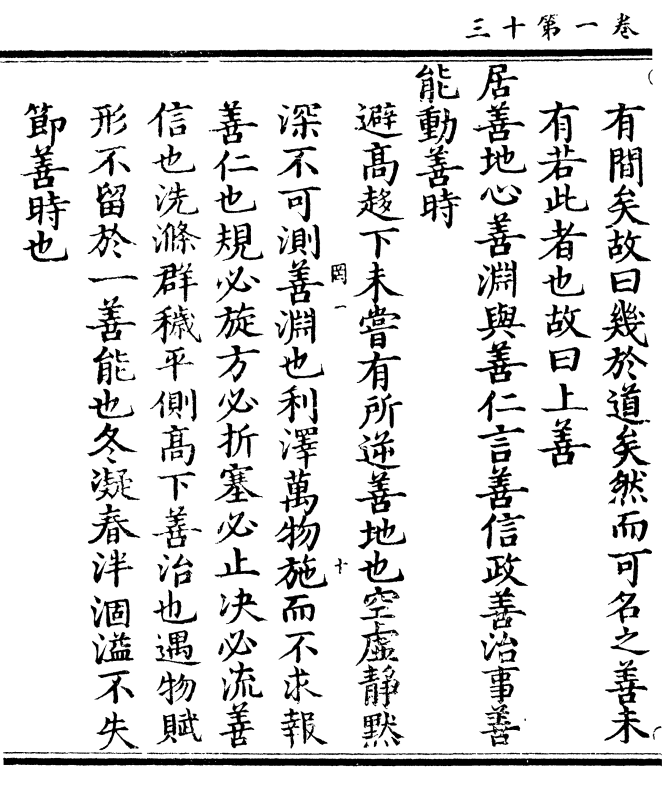 卷一第十三
有間矣故曰幾於道矣然而可名之善未
有若此者也故曰上善
居善地心善淵與善仁言善信政善治事善
能動善時
避高趍下未嘗有所逆善地也空虛靜默
深不可測善淵也利澤萬物施而不求報
善仁也規必旋方必折塞必止决必流善
信也洗滌群穢平側高下善治也遇物賦
形不留於一善能也冬凝春泮涸溢不失
節善時也
罔一
十